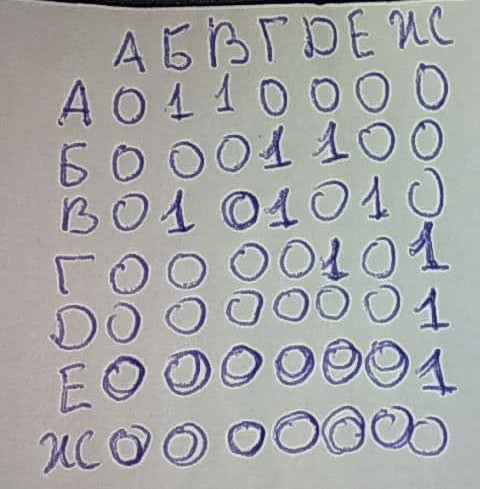 А Б В Г D Е Ж
А 0 1 1 0 0 0 0
Б 0 0 0 1 1 0 0
В 0 1 0 1 0 1 0
Г 0 0 0 0 1 0 1
D 0 0 0 0 0 0 1
Е 0 0 0 0 0 0 1
Ж 0 0 0 0 0 0 0